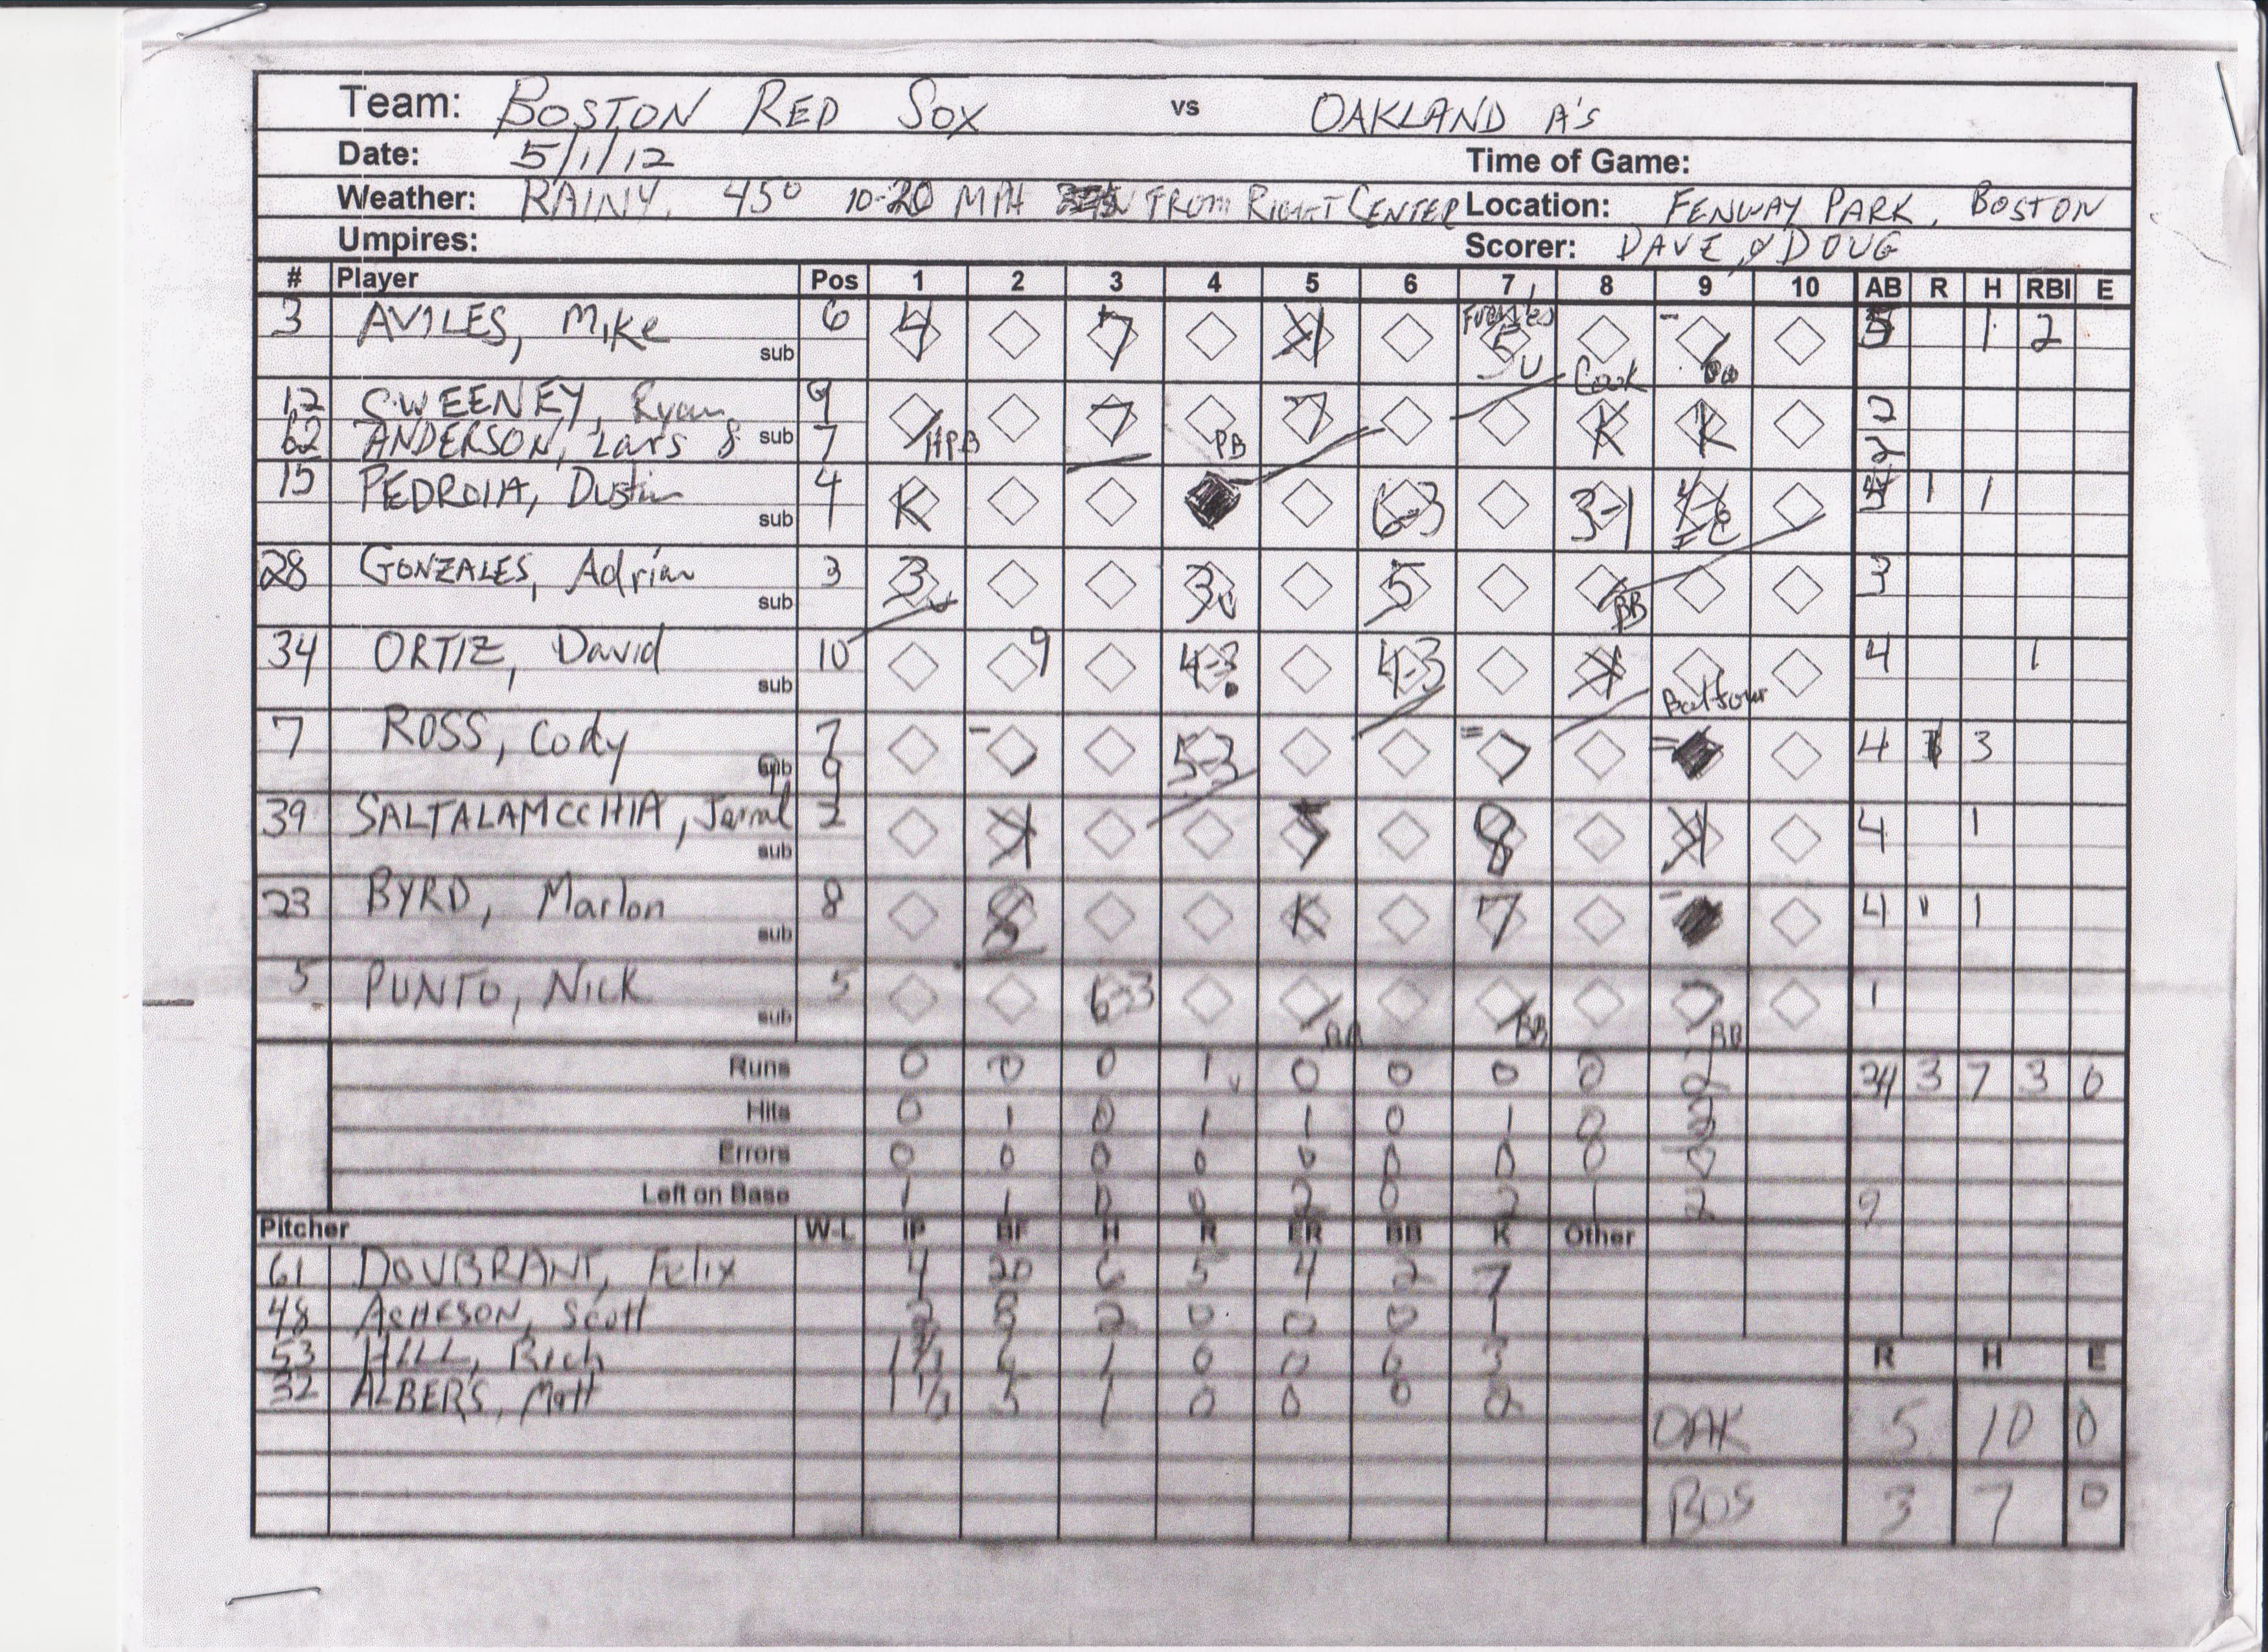 Team: BOSTON RED SOX vs OAKLAND A's
Date: 5/1/12 Time of Game:
Weather: RAINY, 45° 10-20 MPH FROM RIGHT CENTER Location: FENWAY PARK, BOSTON
Umpires: Scorer: DAVE & DOUG
# Player Pos 1 2 3 4 5 6 7 8 9 10 AB R H RBI E
3 AVILES, Mike 6 4 7 K 5U 1 2
sub Cook
12 SWEENEY, Ryan 9 HPB 7 PB 7 K K 2
62 ANDERSON, Lars 8 sub 7 2
15 PEDROIA, Dustin 4 K 6-3 3-1 1 1
sub
28 GONZALES, Adrian 3 3U 3U 5 BB 3
sub
34 ORTIZ, David 10 9 4-3 4-3 K 4 1
sub Balfour
7 ROSS, Cody 7 - 5-3 = 7 = 4 3
sub 9
39 SALTALAMCCHIA, Jarrod 2 K 8 K 4 1
sub
23 BYRD, Marlon 8 8 K 7 - 4 1 1
sub
5 PUNTO, Nick 5 6-3 BB BB BB 1
sub
Runs 0 0 0 1 0 0 0 0 2 34 3 7 3 0
Hits 0 1 0 1 1 0 1 0 2
Errors 0 0 0 0 0 0 0 0 0
Left on Base 1 1 0 0 2 0 2 1 2 9
Pitcher W-L IP BF H R ER BB K Other
61 DOUBRANT, Felix 4 20 6 5 4 2 7
48 ACHESON, Scott 2 8 2 0 0 0 1
53 HILL, Rich 1 2/3 6 1 0 0 0 3
R H E
32 ALBERS, Matt 1 1/3 5 1 0 0 0 0
OAK 5 10 0
BOS 3 7 0